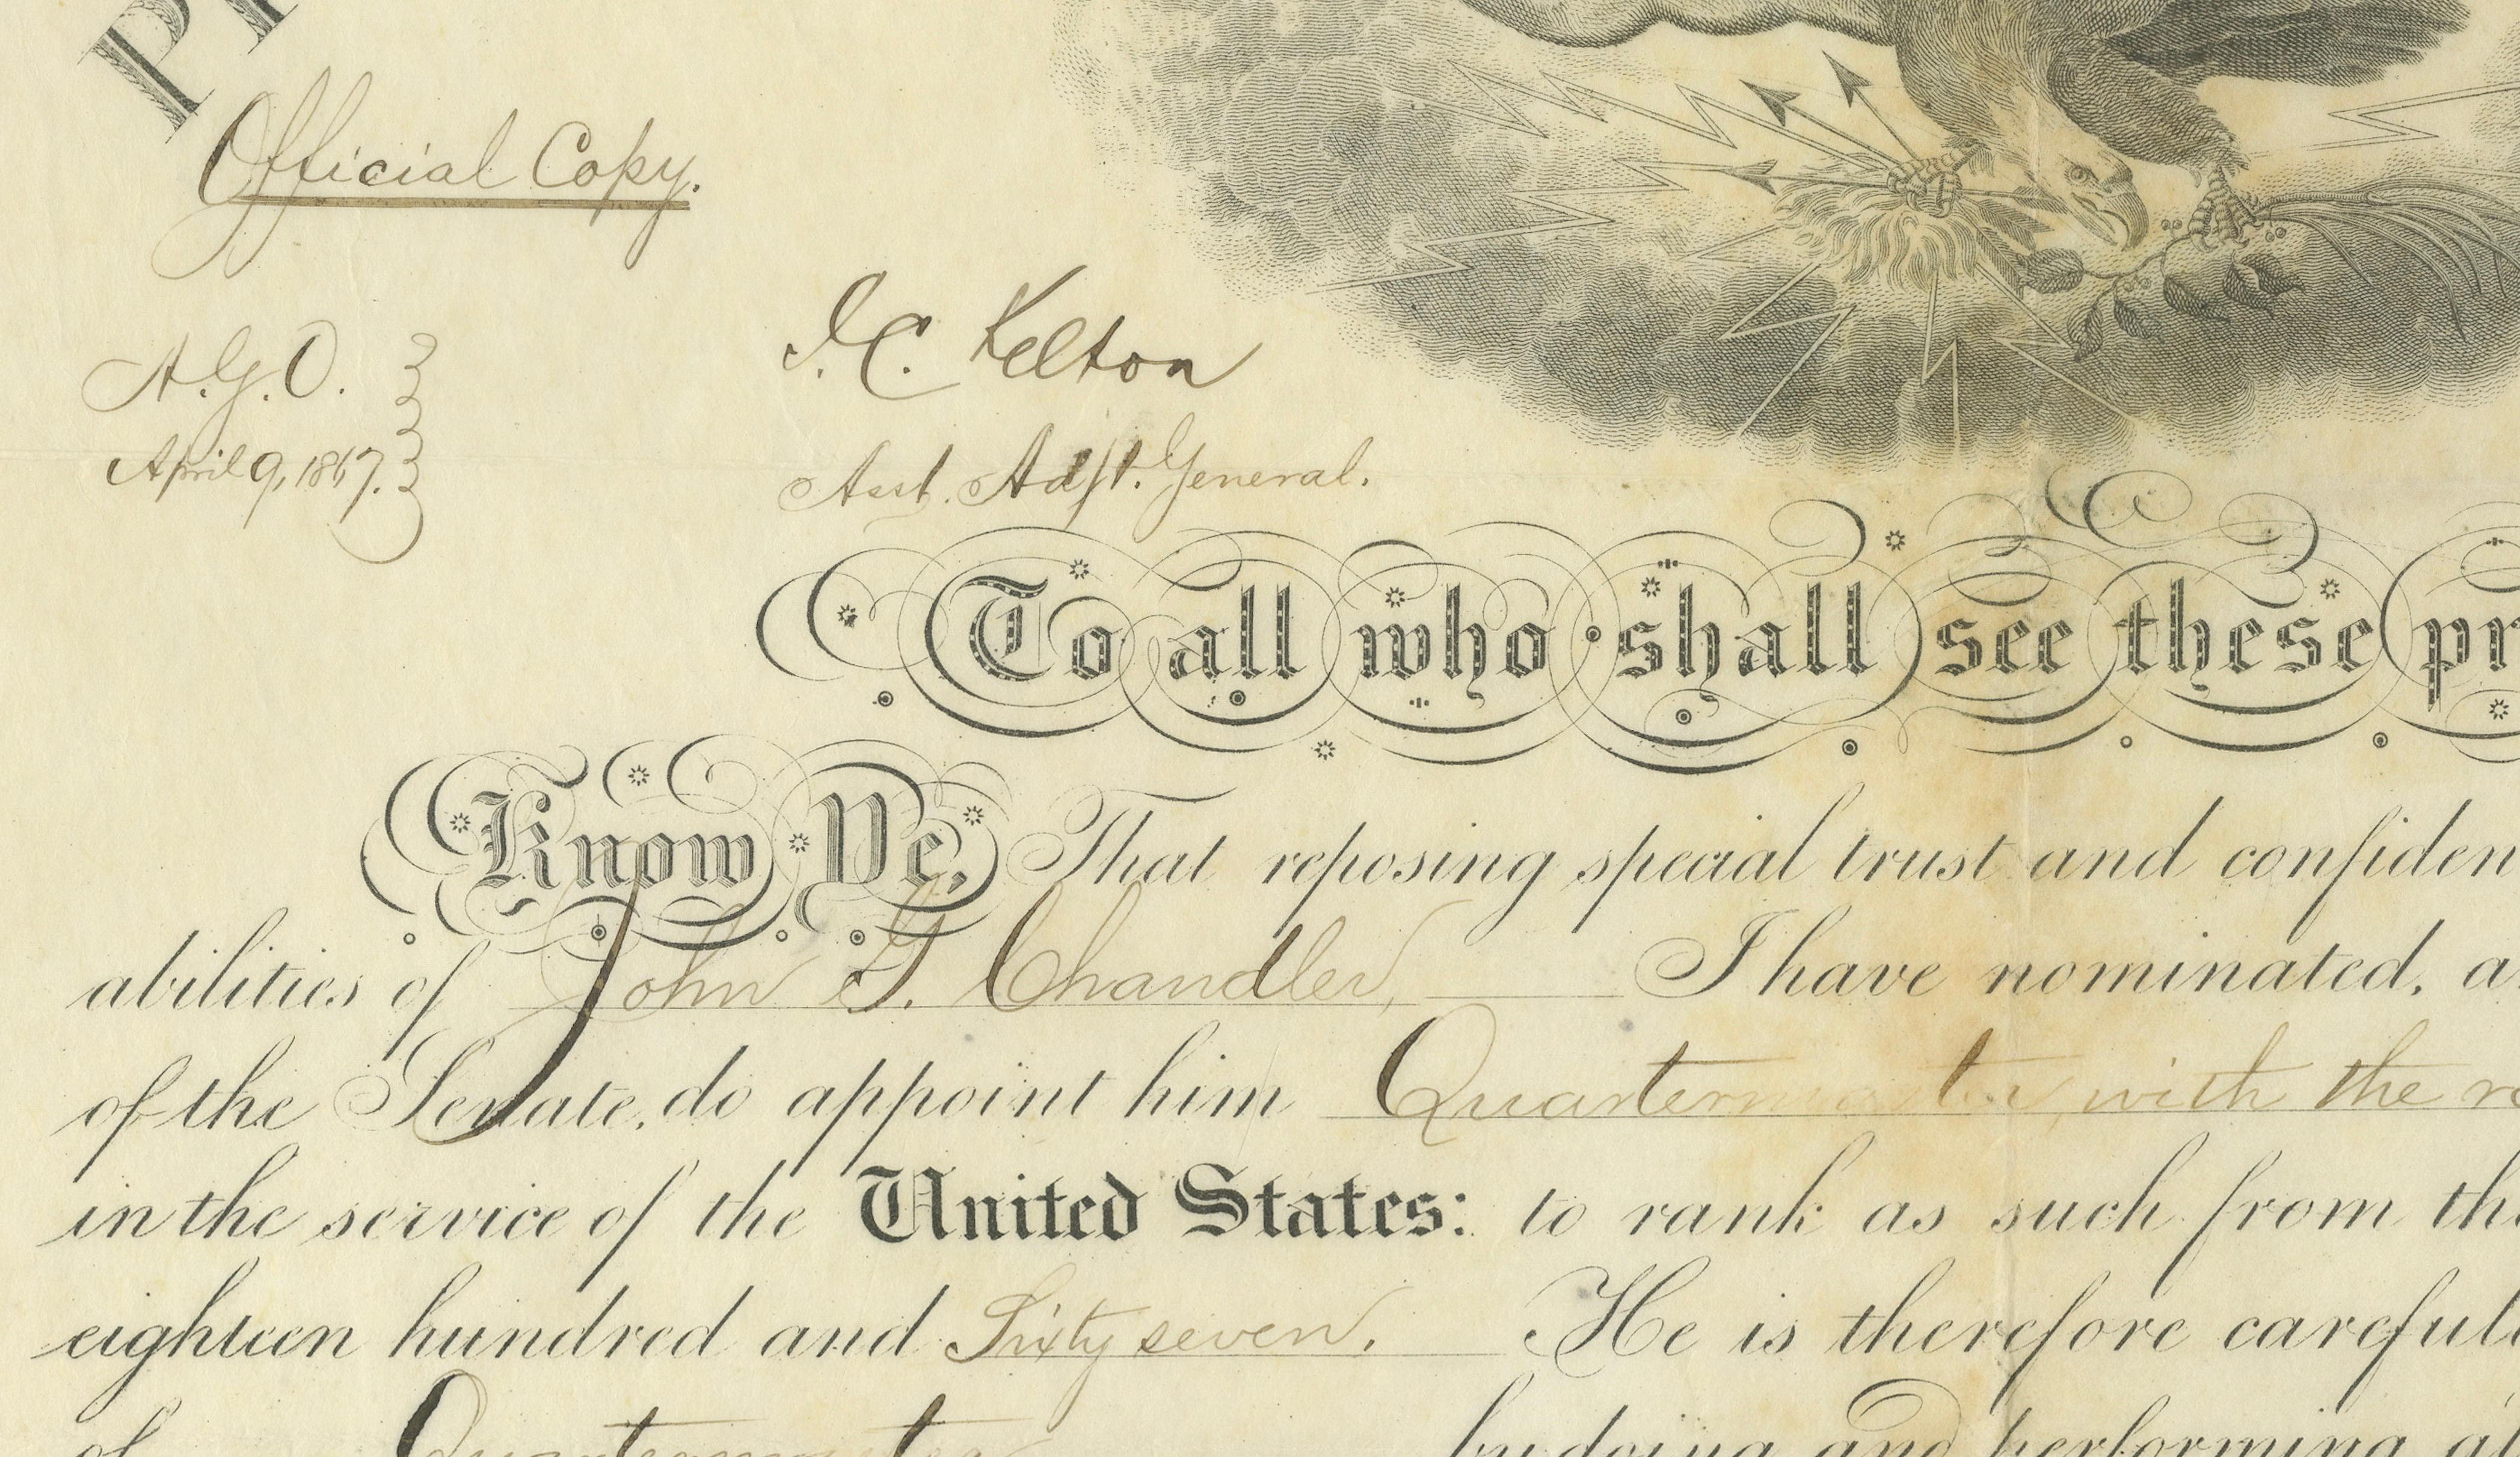 Official Copy.
A.G.O.
April 9, 1867.
J.C. Kelton
Asst. Adjt. General.
To all who shall see these
Know Ye, That reposing special trust and
abilities of John G. Chandler, I have nominated,
of the Senate, do appoint him Quartermaster, with the
in the service of the United States: to rank as such from
eighteen hundred and Sixty seven. He is therefore
of Quartermaster by doing and performing